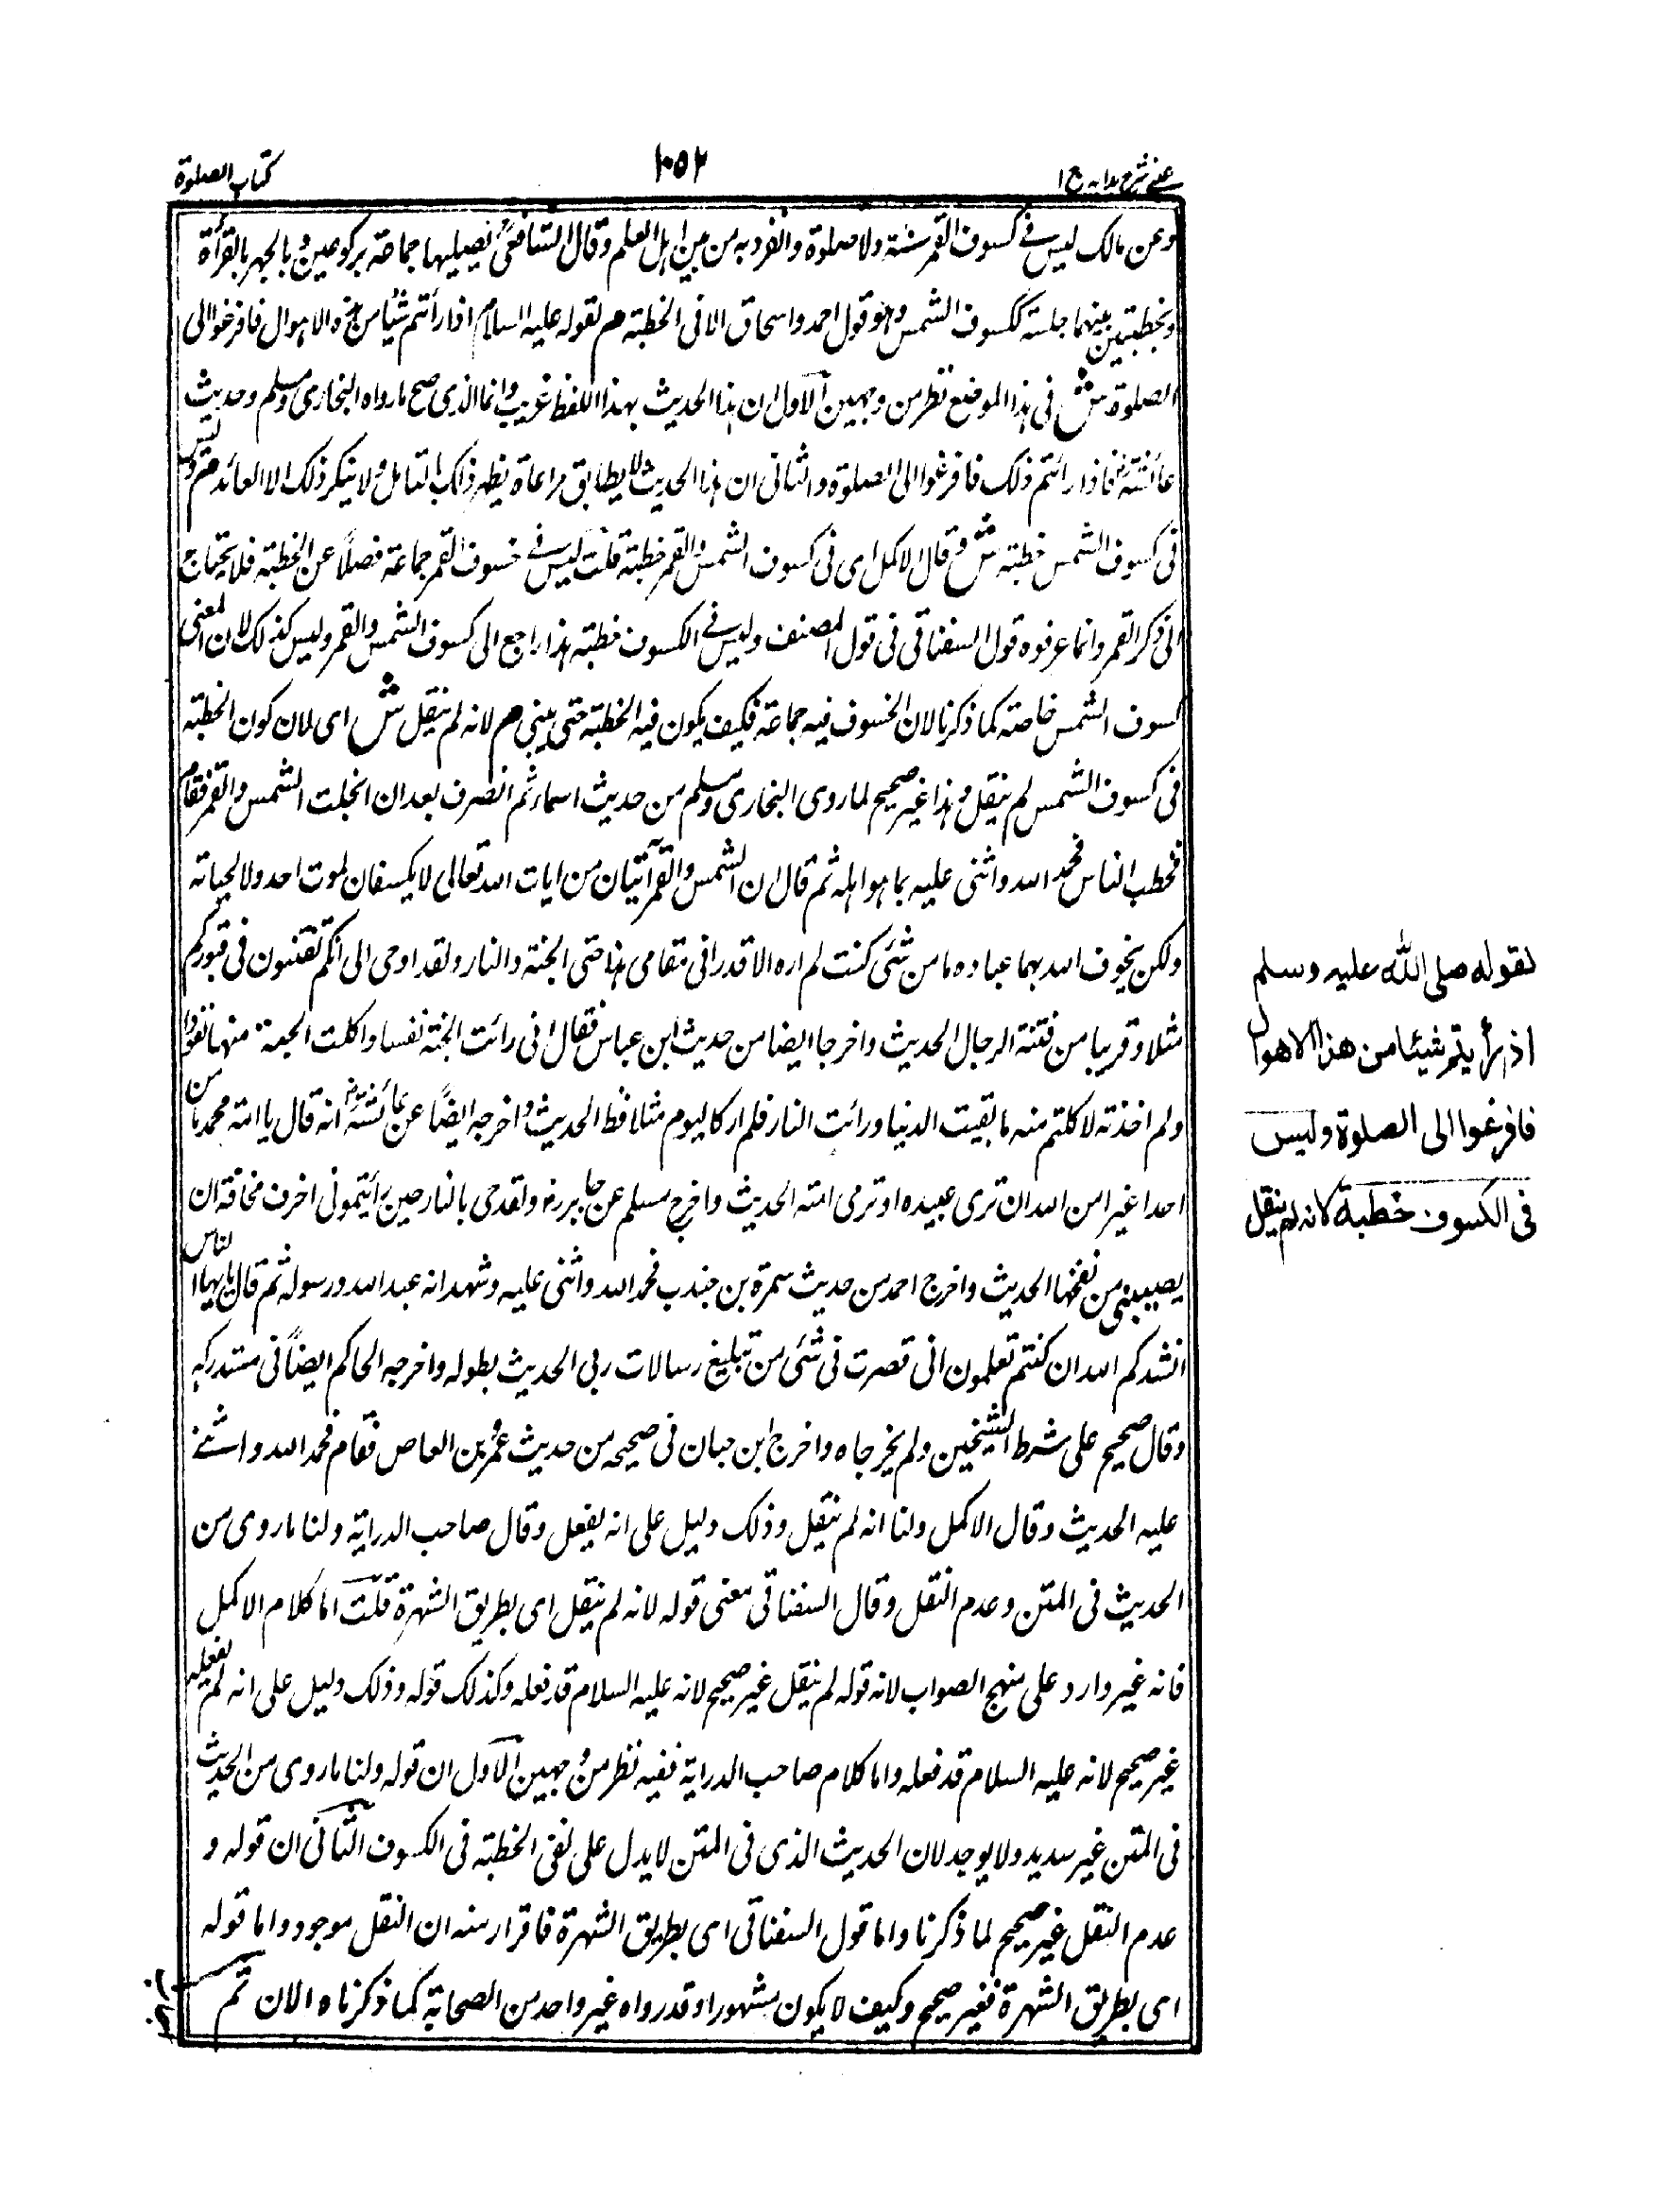 عینی شرح ہدایہ ج ۱
۱۰۵۲
کتاب الصلوة
وعن مالك ليس في كسوف القمر سنة ولا صلوة وانفرد به من بين اهل العلم وقال الشافعي يصليها جماعة بركوعين وبالجهر بالقرأة
وبخطبتين بينهما جلسة ككسوف الشمس وهو قول احمد واسحاق الا في الخطبة م لقوله عليه السلام اذا رأيتم شيئا من هذه الاهوال فافزعوا الى
الصلوة ش في هذا الموضع نظر من وجهين الاول ان هذا الحديث بهذا اللفظ غريب وانما الذي صح ما رواه البخاري ومسلم وحديث
عائشة فاذا رأيتم ذلك فافزعوا الى الصلوة والثاني ان هذا الحديث لا يطابق مراعاة يظهر ذلك بالتامل ولا ينكر ذلك الا المعاند م وليس
في كسوف الشمس خطبة ش وقال الاكمل اي في كسوف الشمس والقمر خطبة قلت ليس في خسوف القمر جماعة فضلاً عن الخطبة فلا يحتاج
الى ذكر القمر وانما عرفوه قول السغناقي في قول المصنف وليس في الكسوف خطبة هذا راجع الى كسوف الشمس والقمر وليس كذلك لان المعنى
كسوف الشمس خاصة كما ذكرنا لان الخسوف فيه جماعة فكيف يكون فيه الخطبة حتى يبنى م لانه لم ينقل ش اي لان كون الخطبة
في كسوف الشمس لم ينقل وهذا غير صحيح لما روى البخاري ومسلم من حديث اسماء ثم انصرف بعد ان انجلت الشمس والقمر فقام
فخطب الناس فحمد الله واثنى عليه بما هو اهله ثم قال ان الشمس والقمر آيتان من ايات الله تعالى لا يكسفان لموت احد ولا لحياته
ولكن يخوف الله بهما عباده ما من شئ كنت لم اره الا قد رائي مقامي هذا حتى الجنة والنار ولقد اوحى الى انكم تفتنون في قبوركم
مثلا وقريبا من فتنة الرجال الحديث واخرجا ايضا من حديث ابن عباس فقال اني رائت الجنة نفسا واكلت الجبة منها تفودا
ولم اخذته لاكلتم منه ما بقيت الدنيا ورائت النار فلم ار كاليوم مثلا فط الحديث واخرجه ايضًا عن عائشة انه قال يا امة محمد ما من
احدا غيرا من الله ان ترى عبيده او ترمي امته الحديث واخرج مسلم عن جابر ولقد جي بالنار حين رأيتموني اخرف مخافة ان
يصيبني من نفحها الحديث واخرج احمد من حديث سمرة بن جندب فحمد الله واثنى عليه وشهد انه عبد الله ورسوله ثم قال يا ايها الناس
انشدكم الله ان كنتم تعلمون اني قصرت في شئ من تبليغ رسالات ربي الحديث بطوله واخرجه الحاكم ايضًا في مستدركه
وقال صحيح على شرط الشيخين ولم يخرجاه واخرج ابن حبان في صحيحه من حديث عمرو بن العاص فقام فحمد الله واثنى
عليه الحديث وقال الاكمل ولنا انه لم ينقل وذلك دليل على انه لم يفعل وقال صاحب الدراية ولنا ما روى من
الحديث في المتن وعدم النقل وقال السغناقي معنى قوله لانه لم ينقل اي بطريق الشهرة قلت اما كلام الاكمل
فانه غير وارد على منهج الصواب لانه قوله لم ينقل غير صحيح لانه عليه السلام قد فعله وكذلك قوله وذلك دليل على انه لم يفعله
غير صحيح لانه عليه السلام قد فعله واما كلام صاحب الدراية ففيه نظر من وجهين الاول ان قوله ولنا ما روى من الحديث
في المتن غير سديد ولا يوجد لان الحديث الذي في المتن لا يدل على نفي الخطبة في الكسوف الثاني ان قوله و
عدم النقل غير صحيح لما ذكرنا واما قول السغناقي اي بطريق الشهرة فاقرار منه ان النقل موجود واما قوله
اي بطريق الشهرة فغير صحيح وكيف لا يكون مشهورا وقد رواه غير واحد من الصحابة كما ذكرناه الان ثم
لقوله صلى الله عليه وسلم
اذا رأيتم شيئا من هذا الاهوال
فافزعوا الى الصلوة وليس
في الكسوف خطبة لانه لم ينقل